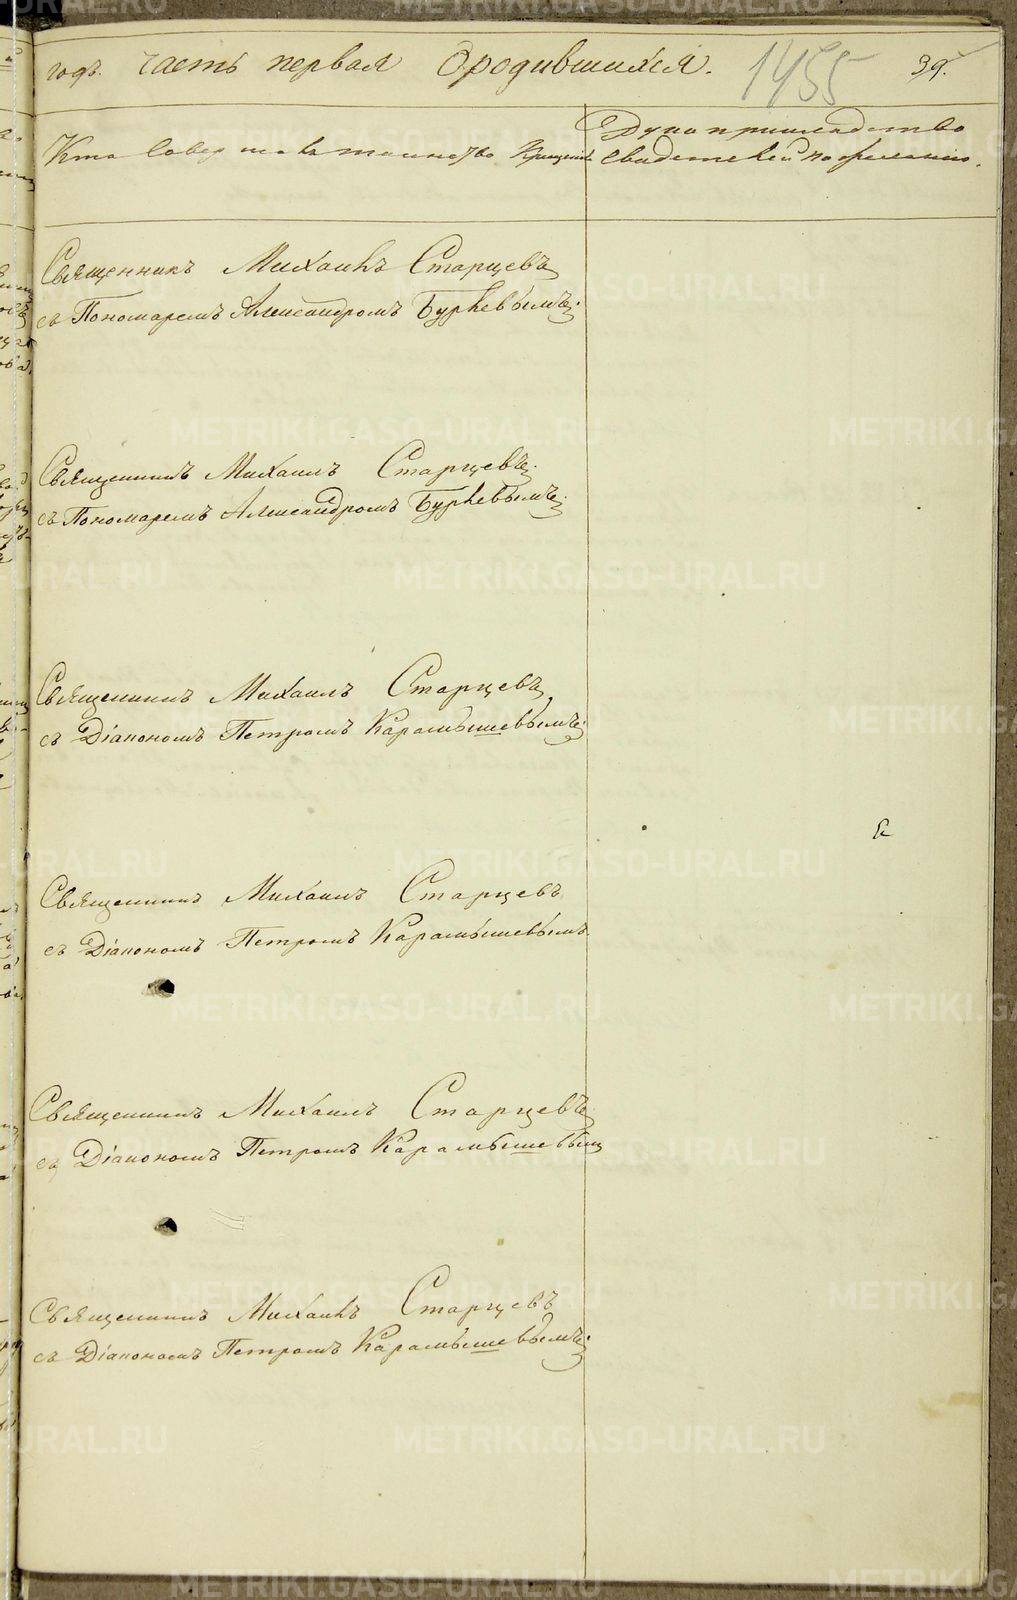 годъ. часть первая о родившихся. 1455 39.
Кто Совершалъ таинство Крещенiя
Рукоприкладство
свидетелей по желанiю.
Священникъ Михаилъ Старцевъ
съ Пономаремъ Александромъ Буркевымъ.
Священникъ Михаилъ Старцевъ.
съ Пономаремъ Александромъ Буркевымъ.
Священникъ Михаилъ Старцевъ
съ Дiакономъ Петромъ Карамышевымъ.
Священникъ Михаилъ Старцевъ
съ Дiакономъ Петромъ Карамышевымъ
Священникъ Михаилъ Старцевъ
съ Дiакономъ Петромъ Карамышевымъ
Священникъ Михаилъ Старцевъ
съ Дiакономъ Петромъ Карамышевымъ.
METRIKI.GASO-URAL.RU